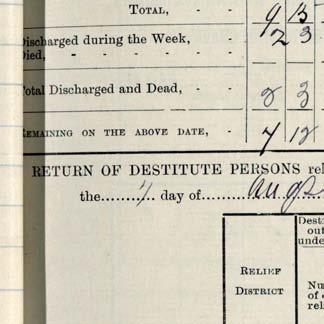 Total, - - 9 13
Discharged during the Week, - 2 3
Died, - - - - - -
Total Discharged and Dead, - - 2 3
Remaining on the above date, - 7 12
RETURN OF DESTITUTE PERSONS rel
the day of Augs
Desti
out
unde
Relief
District
Nu
of c
reli